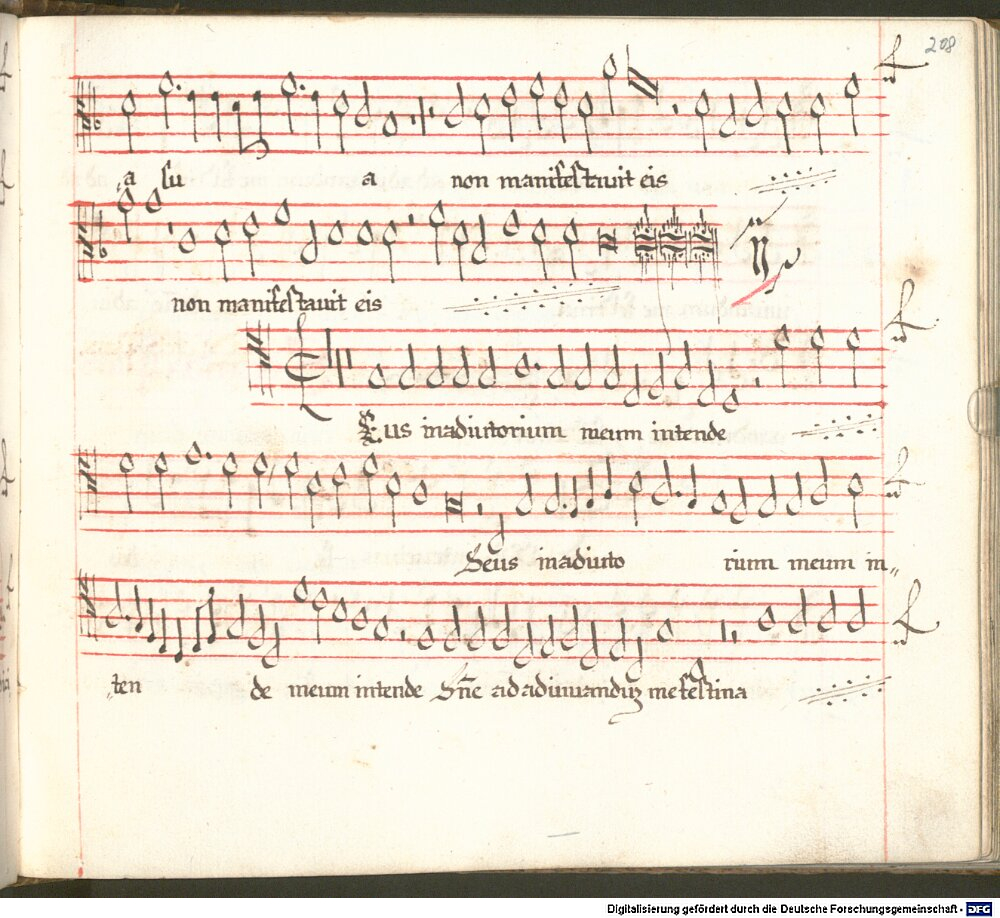 208
a su a non manifestavit eis
non manifestavit eis
eus inadiutorium meum intende
Deus inadiuto rium meum in„
„ten de meum intende Dn̄e adadiuvanduʒ me festina
Digitalisierung gefördert durch die Deutsche Forschungsgemeinschaft - DFG